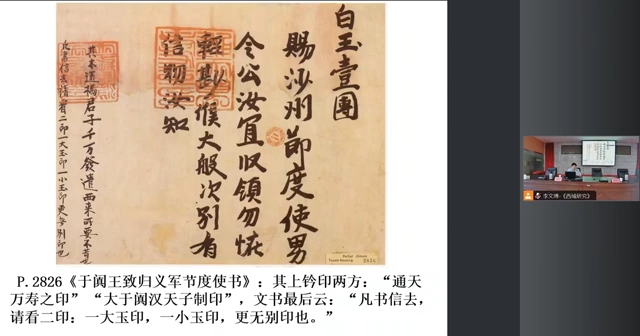 白玉壹團
賜沙州節度使男
令公汝宜収領勿怪
輕尠候大般次別有
信物汝知
其木道楊君子千万發遣西來所要不
凡書信去請看二印一大玉印一小玉印更無別印也
Pelliot chinois
Touen-houang 2826
P.2826《于阗王致归义军节度使书》：其上钤印两方：“通天
万寿之印”“大于阗汉天子制印”，文书最后云：“凡书信去，
请看二印：一大玉印，一小玉印，更无别印也。”
李文博-《西域研究》